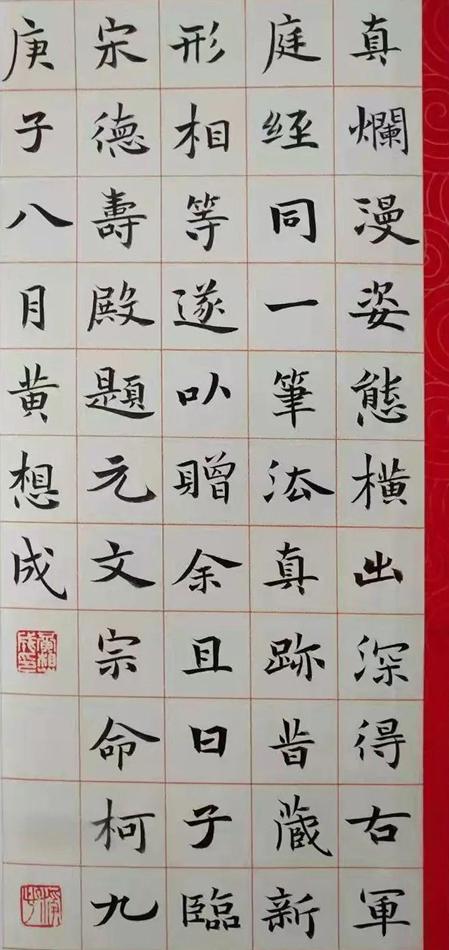 真爛漫姿態横出深得右軍
庭經同一筆法真跡昔藏新
形相等遂以贈余且曰子臨
宋德壽殿題元文宗命柯九
庚子八月黄想成